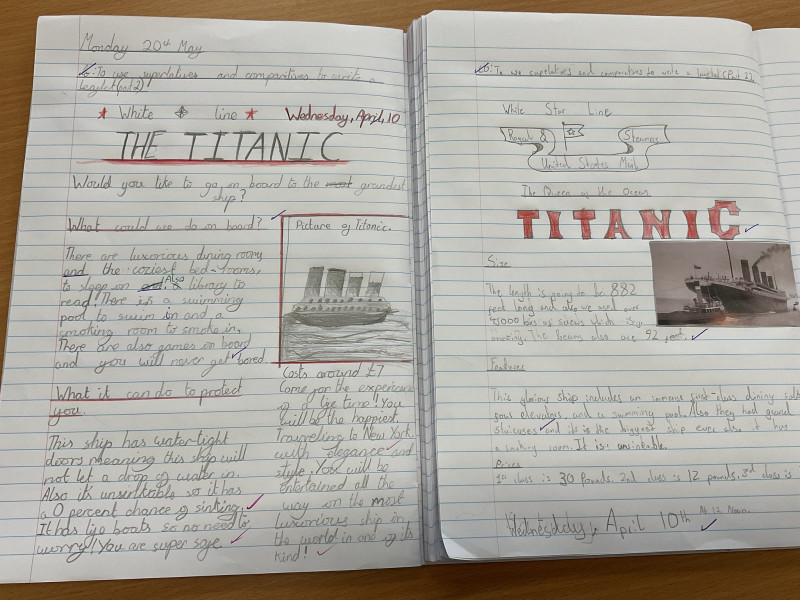 Monday 20th May
LO: To use superlatives and comparatives to write a
leaflet (part 2)
White line Wednesday, April, 10
THE TITANIC
Would you like to go on board to the most grandest
ship?
What could we do on board?
There are luxurious dining rooms
and the coziest bed-rooms,
to sleep on and. Also library to
read! There is a swimming
pool to swim in and a
smoking room to smoke in.
There are also games on board
and you will never get bored.
What it can do to protect
you.
This ship has water-tight
doors meaning this ship will
not let a drop of water in.
Also its unsinkable so it has
a 0 percent chance of sinking.
It has life boats so no need to
worry! You are super safe
Picture of Titanic.
Costs around £7
Come for the experience
of a life time! You
will be the happiest
Traveling to New York
with elegance and
style. You will be
entertained all the
way on the most
luxurious ship in
the world in one of its
kind!
LO: To use superlatives and comparatives to write a leaflet (Part 2).
White Star Line
Royal & Steamer
United States Mail
The Queen of the Ocean
TITANIC
Size
The length is going to be 882
feet long and also we used over
bits of screws which is
amazing. The beams also are 92 feet.
Features
This glorious ship includes an immense first-class dining
four elevators, and a swimming pool. Also they had grand
staircases and it is the biggest ship ever also it has
a smoking room. It is unsinkable.
Prices
1st class is 30 Pounds. 2nd class is 12 pounds. 3rd class is
Wednesday, April 10th At 12 Noon.